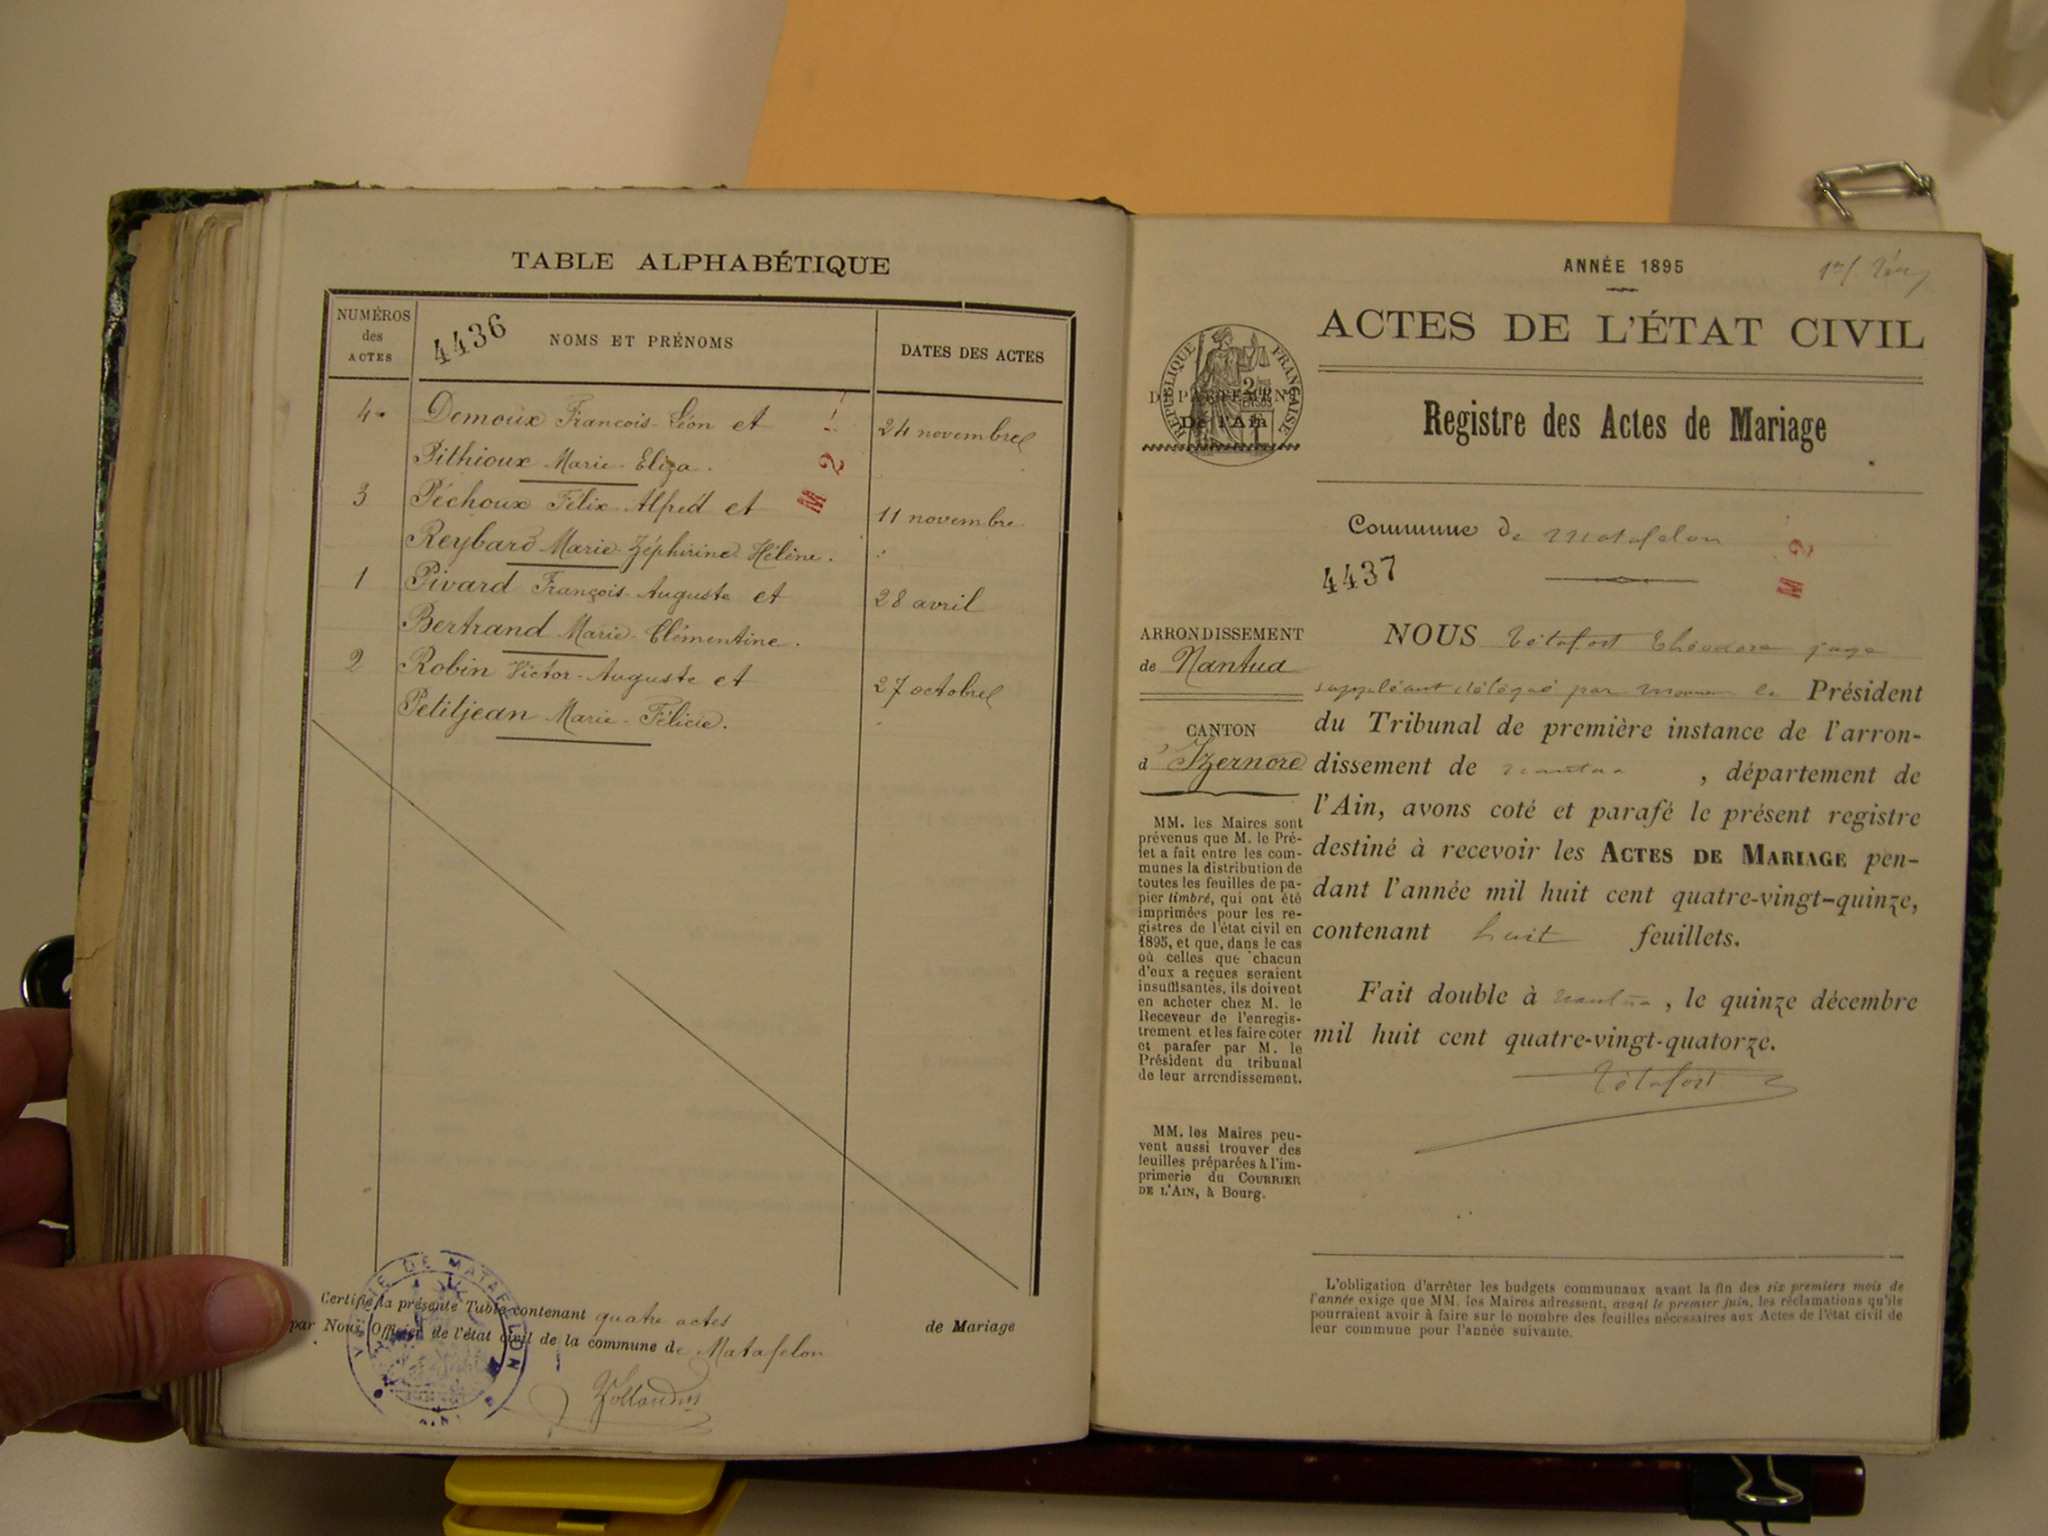 TABLE ALPHABÉTIQUE
NUMÉROS
des
ACTES
4436
NOMS ET PRÉNOMS
DATES DES ACTES
4. Demoux François-Léon et 24 novembre
Pithioux Marie-Eliza.
M 2
3 Péchoux Félix-Alfred et 11 novembre
Reybard Marie-Zéphirine-Hélène.
1 Pivard François-Auguste et 28 avril
Bertrand Marie-Clémentine.
2 Robin Victor-Auguste et 27 octobre
Petitjean Marie-Félicie.
MAIRIE DE MATAFELON
AIN
Certifié la présente Table contenant quatre actes de Mariage
par Nous, Officier de l'état civil de la commune de Matafelon
ANNÉE 1895
ACTES DE L'ÉTAT CIVIL
RÉPUBLIQUE FRANÇAISE
DÉPARTEMENT
De l'Ain
Registre des Actes de Mariage
Commune de Matafelon
4437
M 2
ARRONDISSEMENT
de Nantua
CANTON
d'Izernore
MM. les Maires sont
prévenus que M. le Pré-
fet a fait entre les com-
munes la distribution de
toutes les feuilles de pa-
pier timbré, qui ont été
imprimées pour les re-
gistres de l'état civil en
1895, et que, dans le cas
où celles que chacun
d'eux a reçues seraient
insuffisantes, ils doivent
en acheter chez M. le
Receveur de l'enregis-
trement et les faire coter
et parafer par M. le
Président du tribunal
de leur arrondissement.
MM. les Maires peu-
vent aussi trouver des
feuilles préparées à l'im-
primerie du COURRIER
DE L'AIN, à Bourg.
NOUS Tétafort Théodore juge
suppléant délégué par Monsieur le Président
du Tribunal de première instance de l'arron-
dissement de Nantua, département de
l'Ain, avons coté et parafé le présent registre
destiné à recevoir les ACTES DE MARIAGE pen-
dant l'année mil huit cent quatre-vingt-quinze,
contenant huit feuillets.
Fait double à Nantua, le quinze décembre
mil huit cent quatre-vingt-quatorze.
Tétafort
L'obligation d'arrêter les budgets communaux avant la fin des six premiers mois de
l'année exige que MM. les Maires adressent, avant le premier juin, les réclamations qu'ils
pourraient avoir à faire sur le nombre des feuilles nécessaires aux Actes de l'état civil de
leur commune pour l'année suivante.